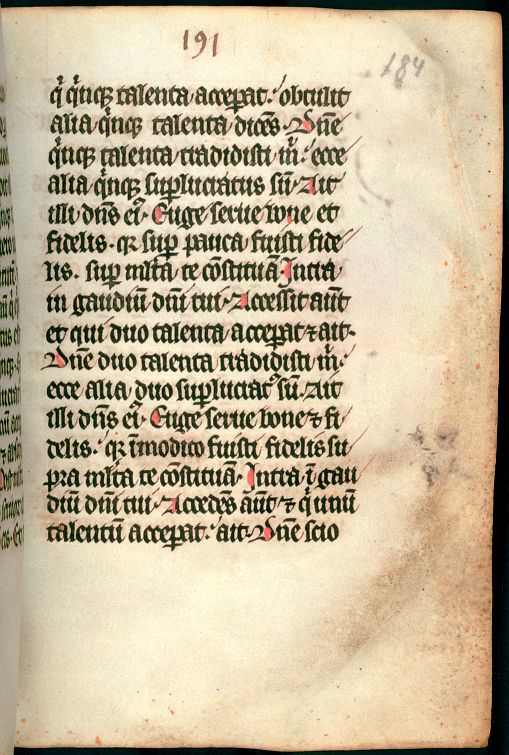 191
184
q̇ q̇nq; talenta acceꝑat. obtulit
alia q̇nq; talenta dicēs. Dn̄e
q̇nq; talenta tradidisti m̄. ecce
alia q̇nq; suꝑlucratus sū. Ait
illi dn̄s ei᾽. Euge serue bone et
fidelis. qꝛ suꝑ pauca fuisti fide
lis. suꝑ ml̄ta te cōstituā. Intra
in gaudiū dn̄i tui. Accessit aūt
et qui duo talenta acceꝑat ⁊ ait.
Dn̄e duo talenta tradidisti m̄.
ecce alia duo suꝑlucrat᾽ sū. Ait
illi dn̄s ei᾽. Euge serue bone ⁊ fi
delis. qꝛ ī modico fuisti fidelis su
pra ml̄ta te cōstituā. Intra ī gau
diū dn̄i tui. Accedēs aūt ⁊ q̇ unū
talentū acceꝑat. ait. Dn̄e scio